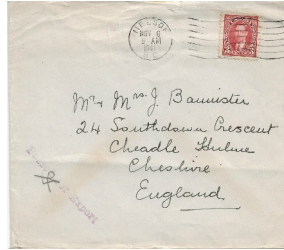 NELSON
NOV 6
9 AM
B.C.
Mr & Mrs. J. Bannister
24 Southdown Crescent
Cheadle Hulme
Cheshire
England